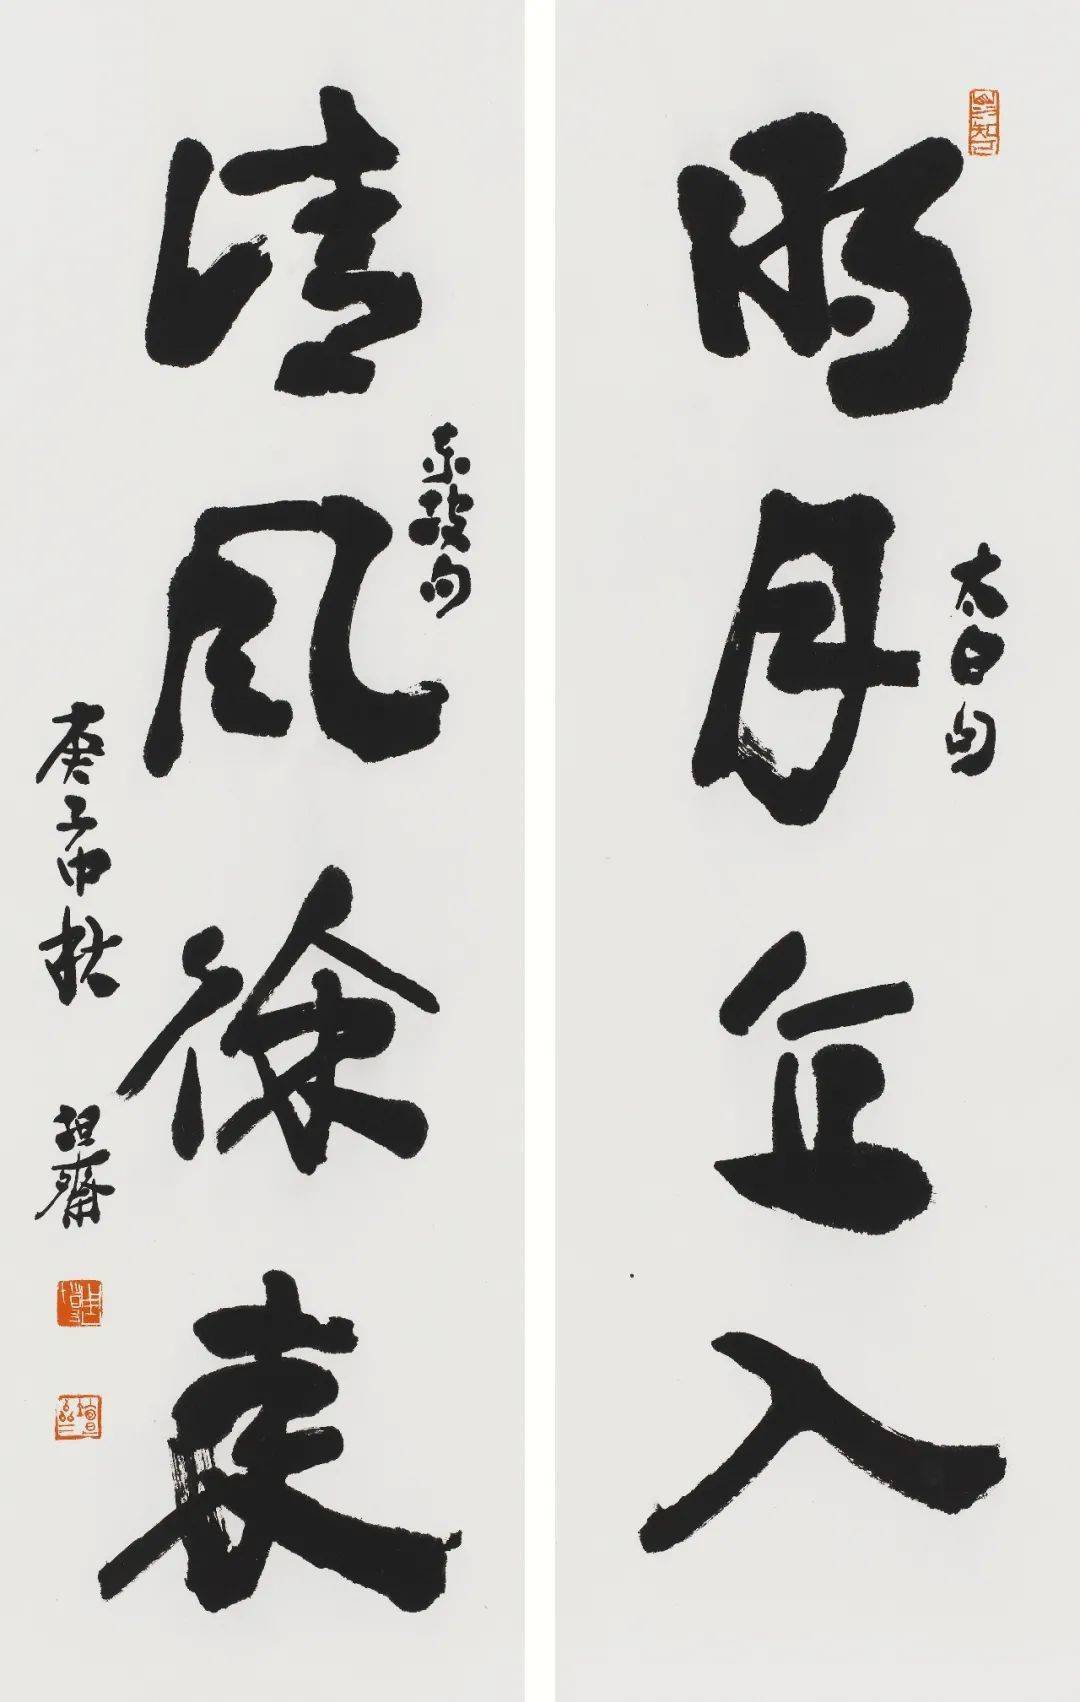 明月直入
太白句
清风徐来
东坡句
庚子中秋
坦齋